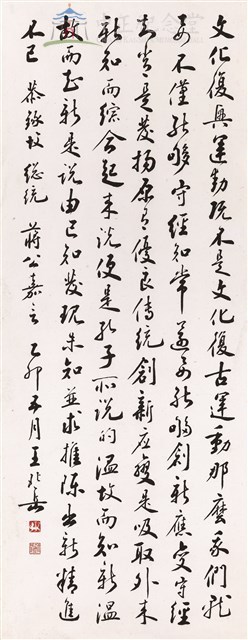 文化復興運動既不是文化復古運動那麼我們就
要不僅能夠守經知常還要能夠創新應變守經
知常是發揚原有優良傳統創新應變是吸取外來
新知而綜合起來說便是孔子所說的溫故而知新溫
故而知新是說由已知發現未知並求推陳出新精進
不已 恭錄故 總統 蔣公嘉言 乙卯五月王北岳